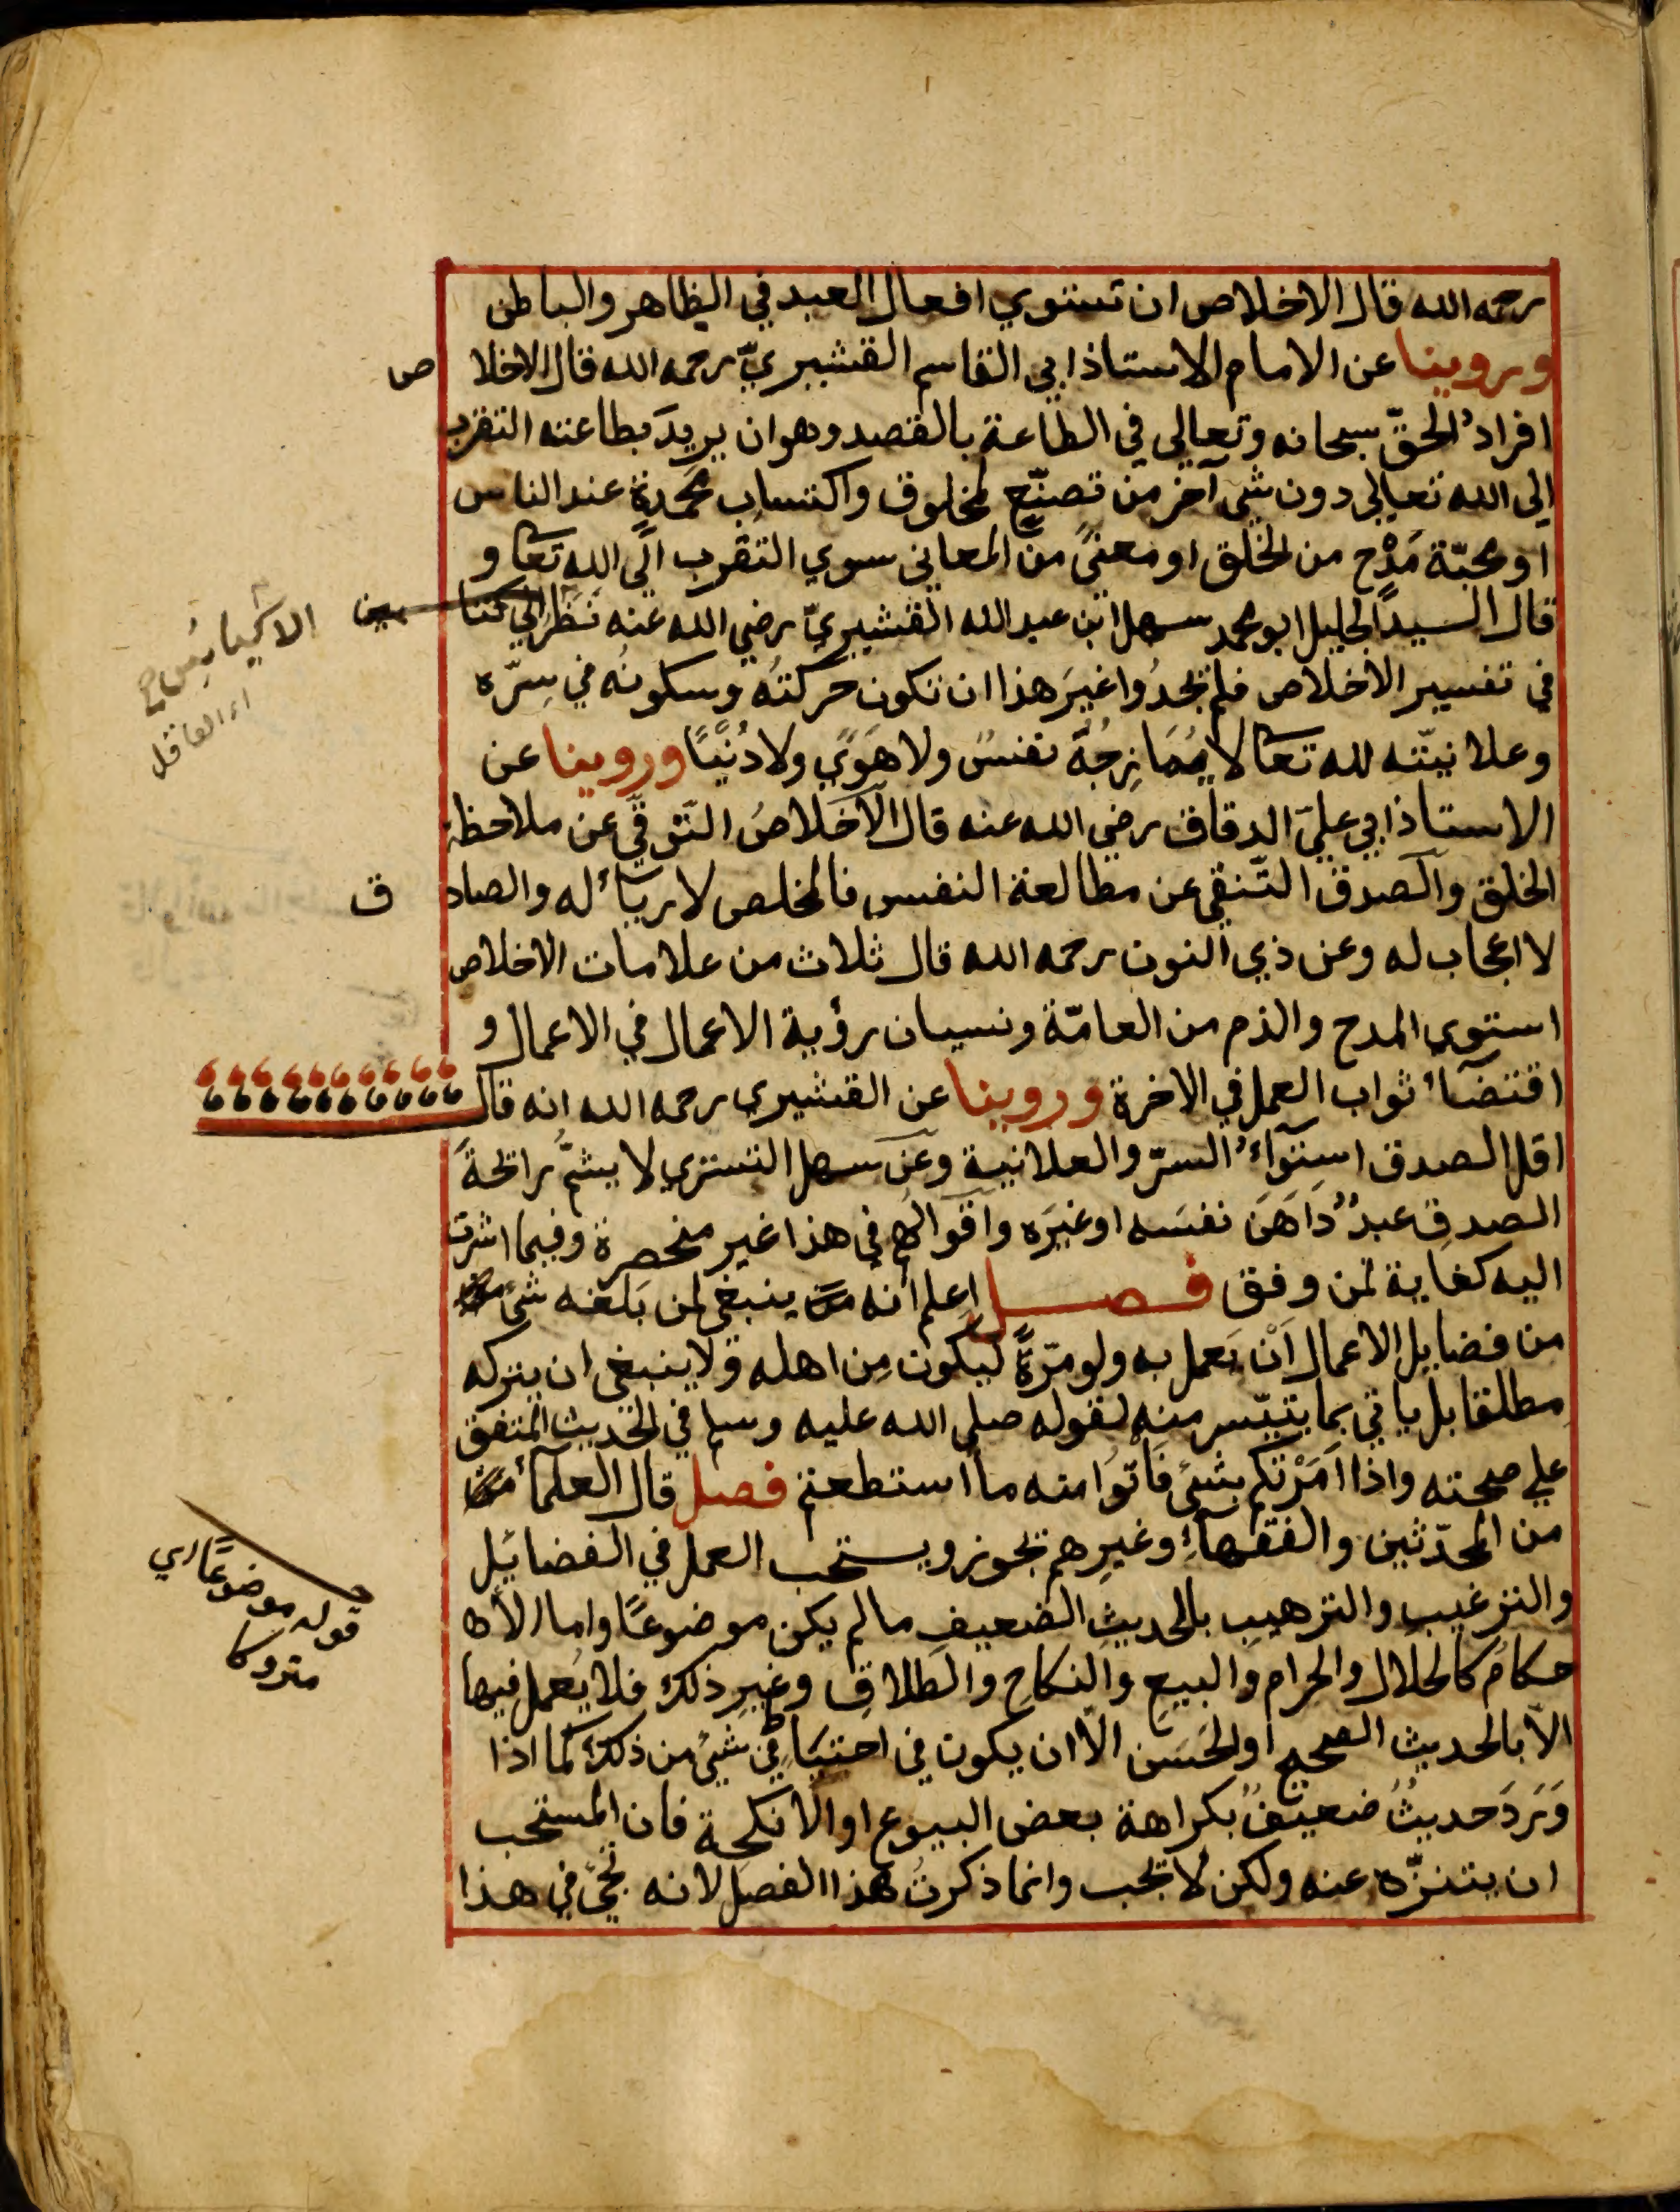 رحمه الله قال الاخلاص ان تستوي افعال العبد في الظاهر والباطن
وروينا عن الامام الاستاذ ابي القاسم القشيريّ رحمه الله قال الاخلا ص
افرادُ الحقّ سبحانه وتعالي في الطاعة بالقصد وهو ان يريدَ بطاعته التقرب
الي الله تعالي دون شيء آخر من تصنّع لمخلوق واكتساب مَحمَدةٍ عند الناس
او محبّة مَدْح من الخلق او معنيً من المعاني سوي التقرب الي الله تعا و
قال السيد الجليل ابو محمد سهل ابن عبد الله القشيريّ رضي الله عنه نَظَرَ الي كتا سين
الاكياسُ صح
اء العاقل
في تفسير الاخلاص فلم يجدُوا غيرَ هذا ان تكون حركتُه وسكونُه في سِرّه
وعلانيّته لله تعا لا يُمَازِجُهُ نفسٌ ولا هَوًي ولا دُنْيًا وروينا عن
الاستاذ ابي عليّ الدقاق رضي الله عنه قال الاخلاصُ التّوقّي عن ملاحظة
الخلق والصدق التّنقي عن مطالعة النفس فالمخلص لا رياء له والصاد ق
لا اعجاب له وعن ذي النون رحمه الله قال ثلاث من علامات الاخلاص
استوي المدح والذم من العامّة ونسيان رؤية الاعمال في الاعمال و
اقتضاء ثواب العمل في الاخرة وروينا عن القشيري رحمه الله انه قال
اقل الصدق استِوَاءُ السرّ والعلانية وعن سهل التستري لا يشمُّ رائحةَ
الصدقِ عبدٌ دَاهَنَ نفسَه او غيرَه واقوالهم في هذا غير منحصرة وفيما اشرت
اليه كفاية لمن وفق فصل اعلم انه ينبغي لمن بَلَغه شيء
من فضايل الاعمال اَنْ يَعمل به ولو مرّةً ليكون مِن اهله ولا ينبغي ان يتركه
مطلقا بل ياتي بما يتيّسر منه لقوله صلي الله عليه وسلم في الحديث المتفق
علي صحته واذا اَمَرْتكم بشيء فَاْتوا منه ما استطعتم فصل قال العلماء
من المحدّثين والفقهاء وغيرِهم يجوز ويستحب العمل في الفضائيل
والترغيبِ والترهيبِ بالحديثِ الضعيفِ ما لم يكن موضوعًا واما الا
قوله موضوعًا اي
متروكا
حكامُ كالحلال والحرام والبيعِ والنكاحِ والطلاقِ وغيرِ ذلك فلا يُعمل فيها
الّا بالحديث الصحيح او الحَسَن الّا ان يكون في احتيَاطٍ في شيء من ذلك كما اذا
وَرَدَ حديثٌ ضعيفٌ بكراهة بعض البيوع او الانكحة فان المستحب
ان يتنزّه عنه ولكن لا يجب وانما ذكرتُ هذا الفصل لانه يجئ في هذا